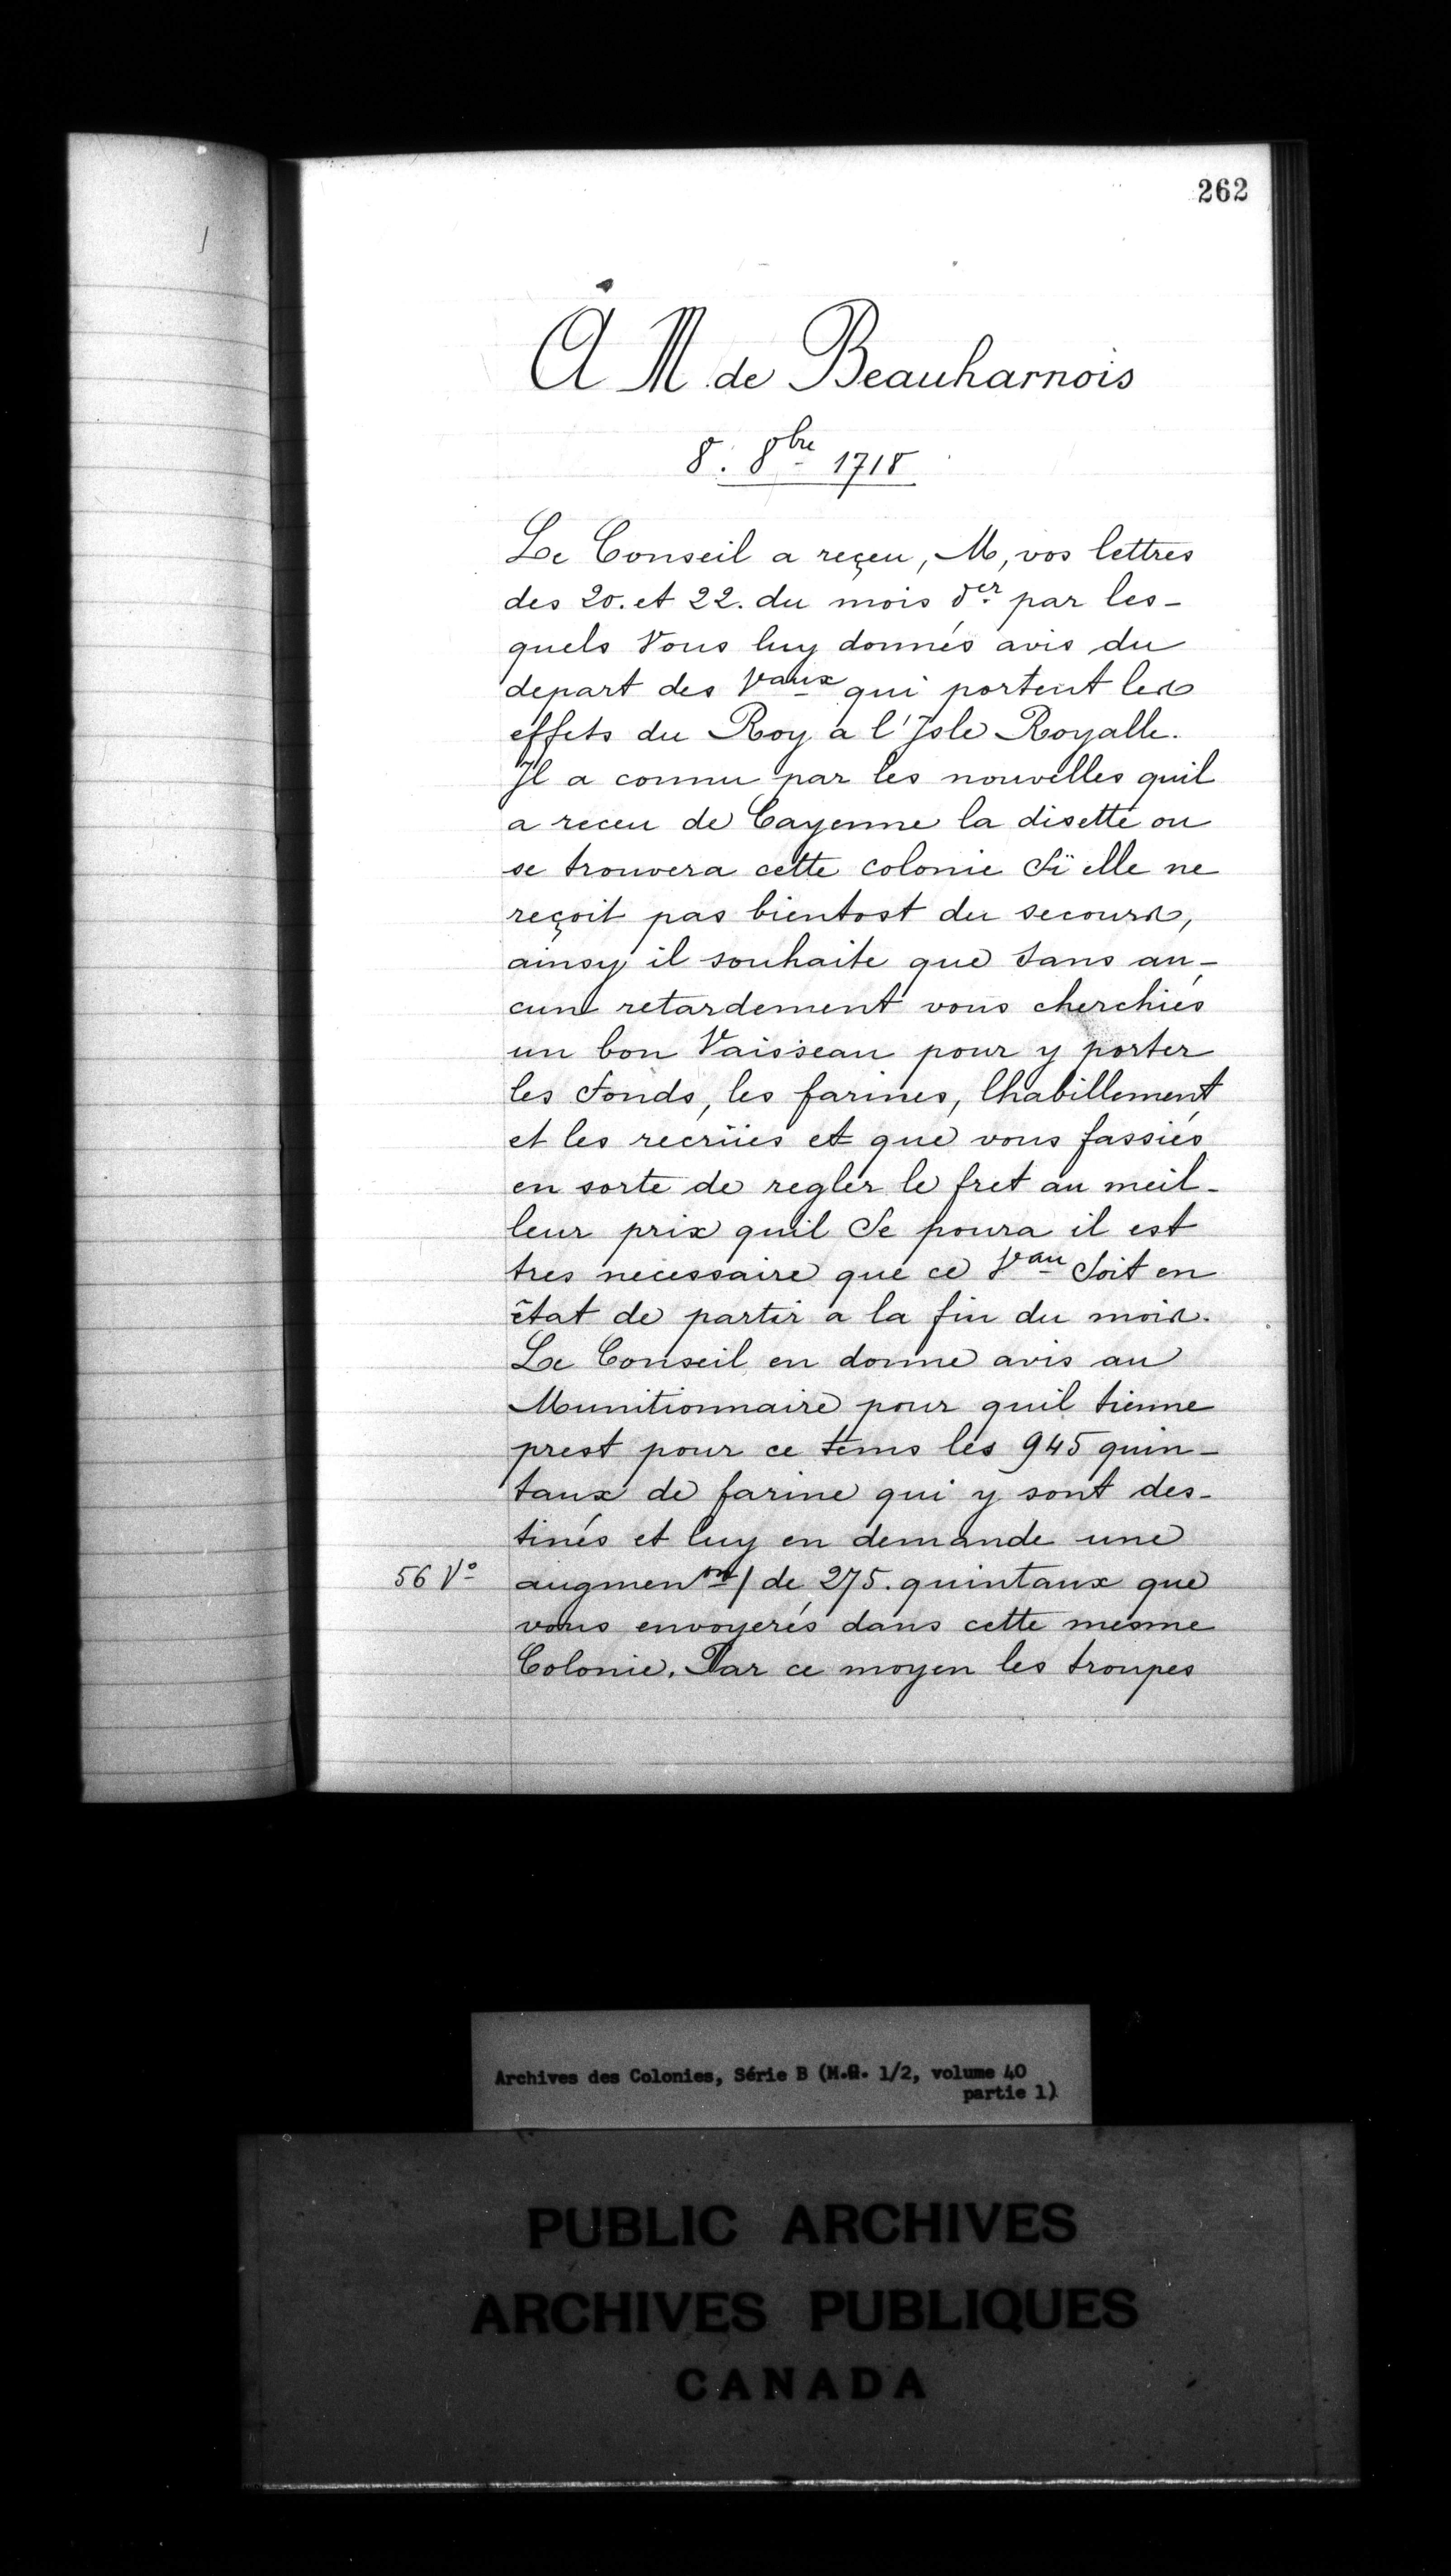 262
A M de Beauharnois
8. 8bre 1718
Le Conseil a reçeu, M, vos lettres
des 20. et 22. du mois der par les-
quels Vous luy donnés avis du
depart des Vaux qui portent les
effets du Roy a l'Isle Royalle.
Il a connu par les nouvelles quil
a receu de Cayenne la disette ou
se trouvera cette colonie Sï elle ne
reçoit pas bientost du secours,
ainsy il souhaite que Sans au-
cun retardement vous cherchiés
un bon Vaisseau pour y porter
les fonds, les farines, lhabillement
et les recrües et que vous fassiés
en sorte de regler le fret au meil-
leur prix quil Se poura il est
tres necessaire que ce Vau Soit en
état de partir a la fin du mois.
Le Conseil en donne avis au
Munitionnaire pour quil tienne
prest pour ce tems les 945 quin-
taux de farine qui y sont des-
tinés et luy en demande une
56 Vo augmenon / de 275. quintaux que
vous envoyerés dans cette mesme
Colonie. Par ce moyen les troupes
Archives des Colonies, Série B (M.G. 1/2, volume 40
partie 1)
PUBLIC ARCHIVES
ARCHIVES PUBLIQUES
CANADA